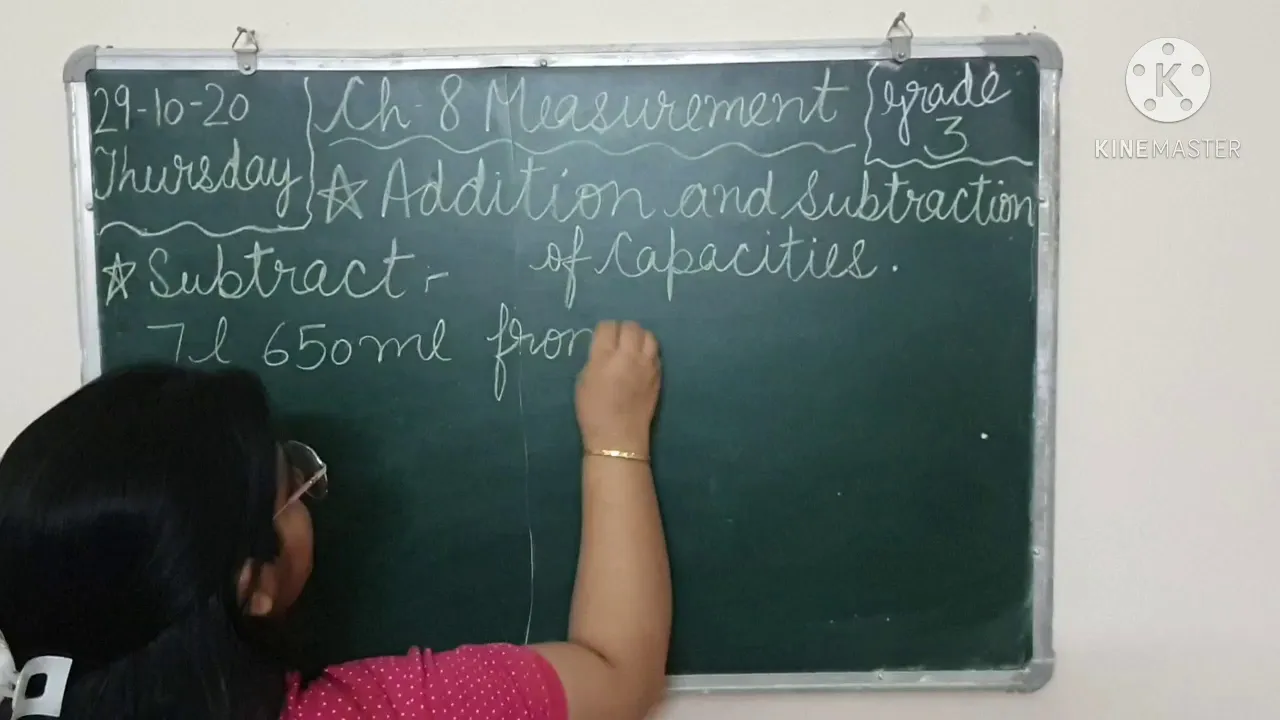 29-10-20
Thursday
Ch-8 Measurement
Grade
3
☆ Addition and Subtraction
of Capacities.
☆ Subtract :-
7l 650ml from
K
KINEMASTER